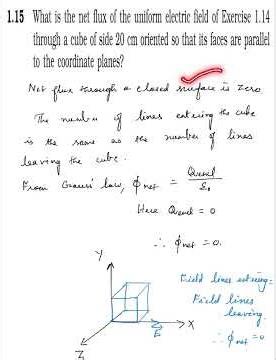 1.15 What is the net flux of the uniform electric field of Exercise 1.14
through a cube of side 20 cm oriented so that its faces are parallel
to the coordinate planes?
Net flux through a closed surface is zero
The number of lines entering the cube
is the same as the number of lines
leaving the cube.
From Gauss' law, ϕ net = Qencl / ε₀
Here Qencl = 0
∴ ϕ net = 0.
Y
Field lines entering =
Field lines
leaving.
X
E
Z
∴ ϕ net = 0